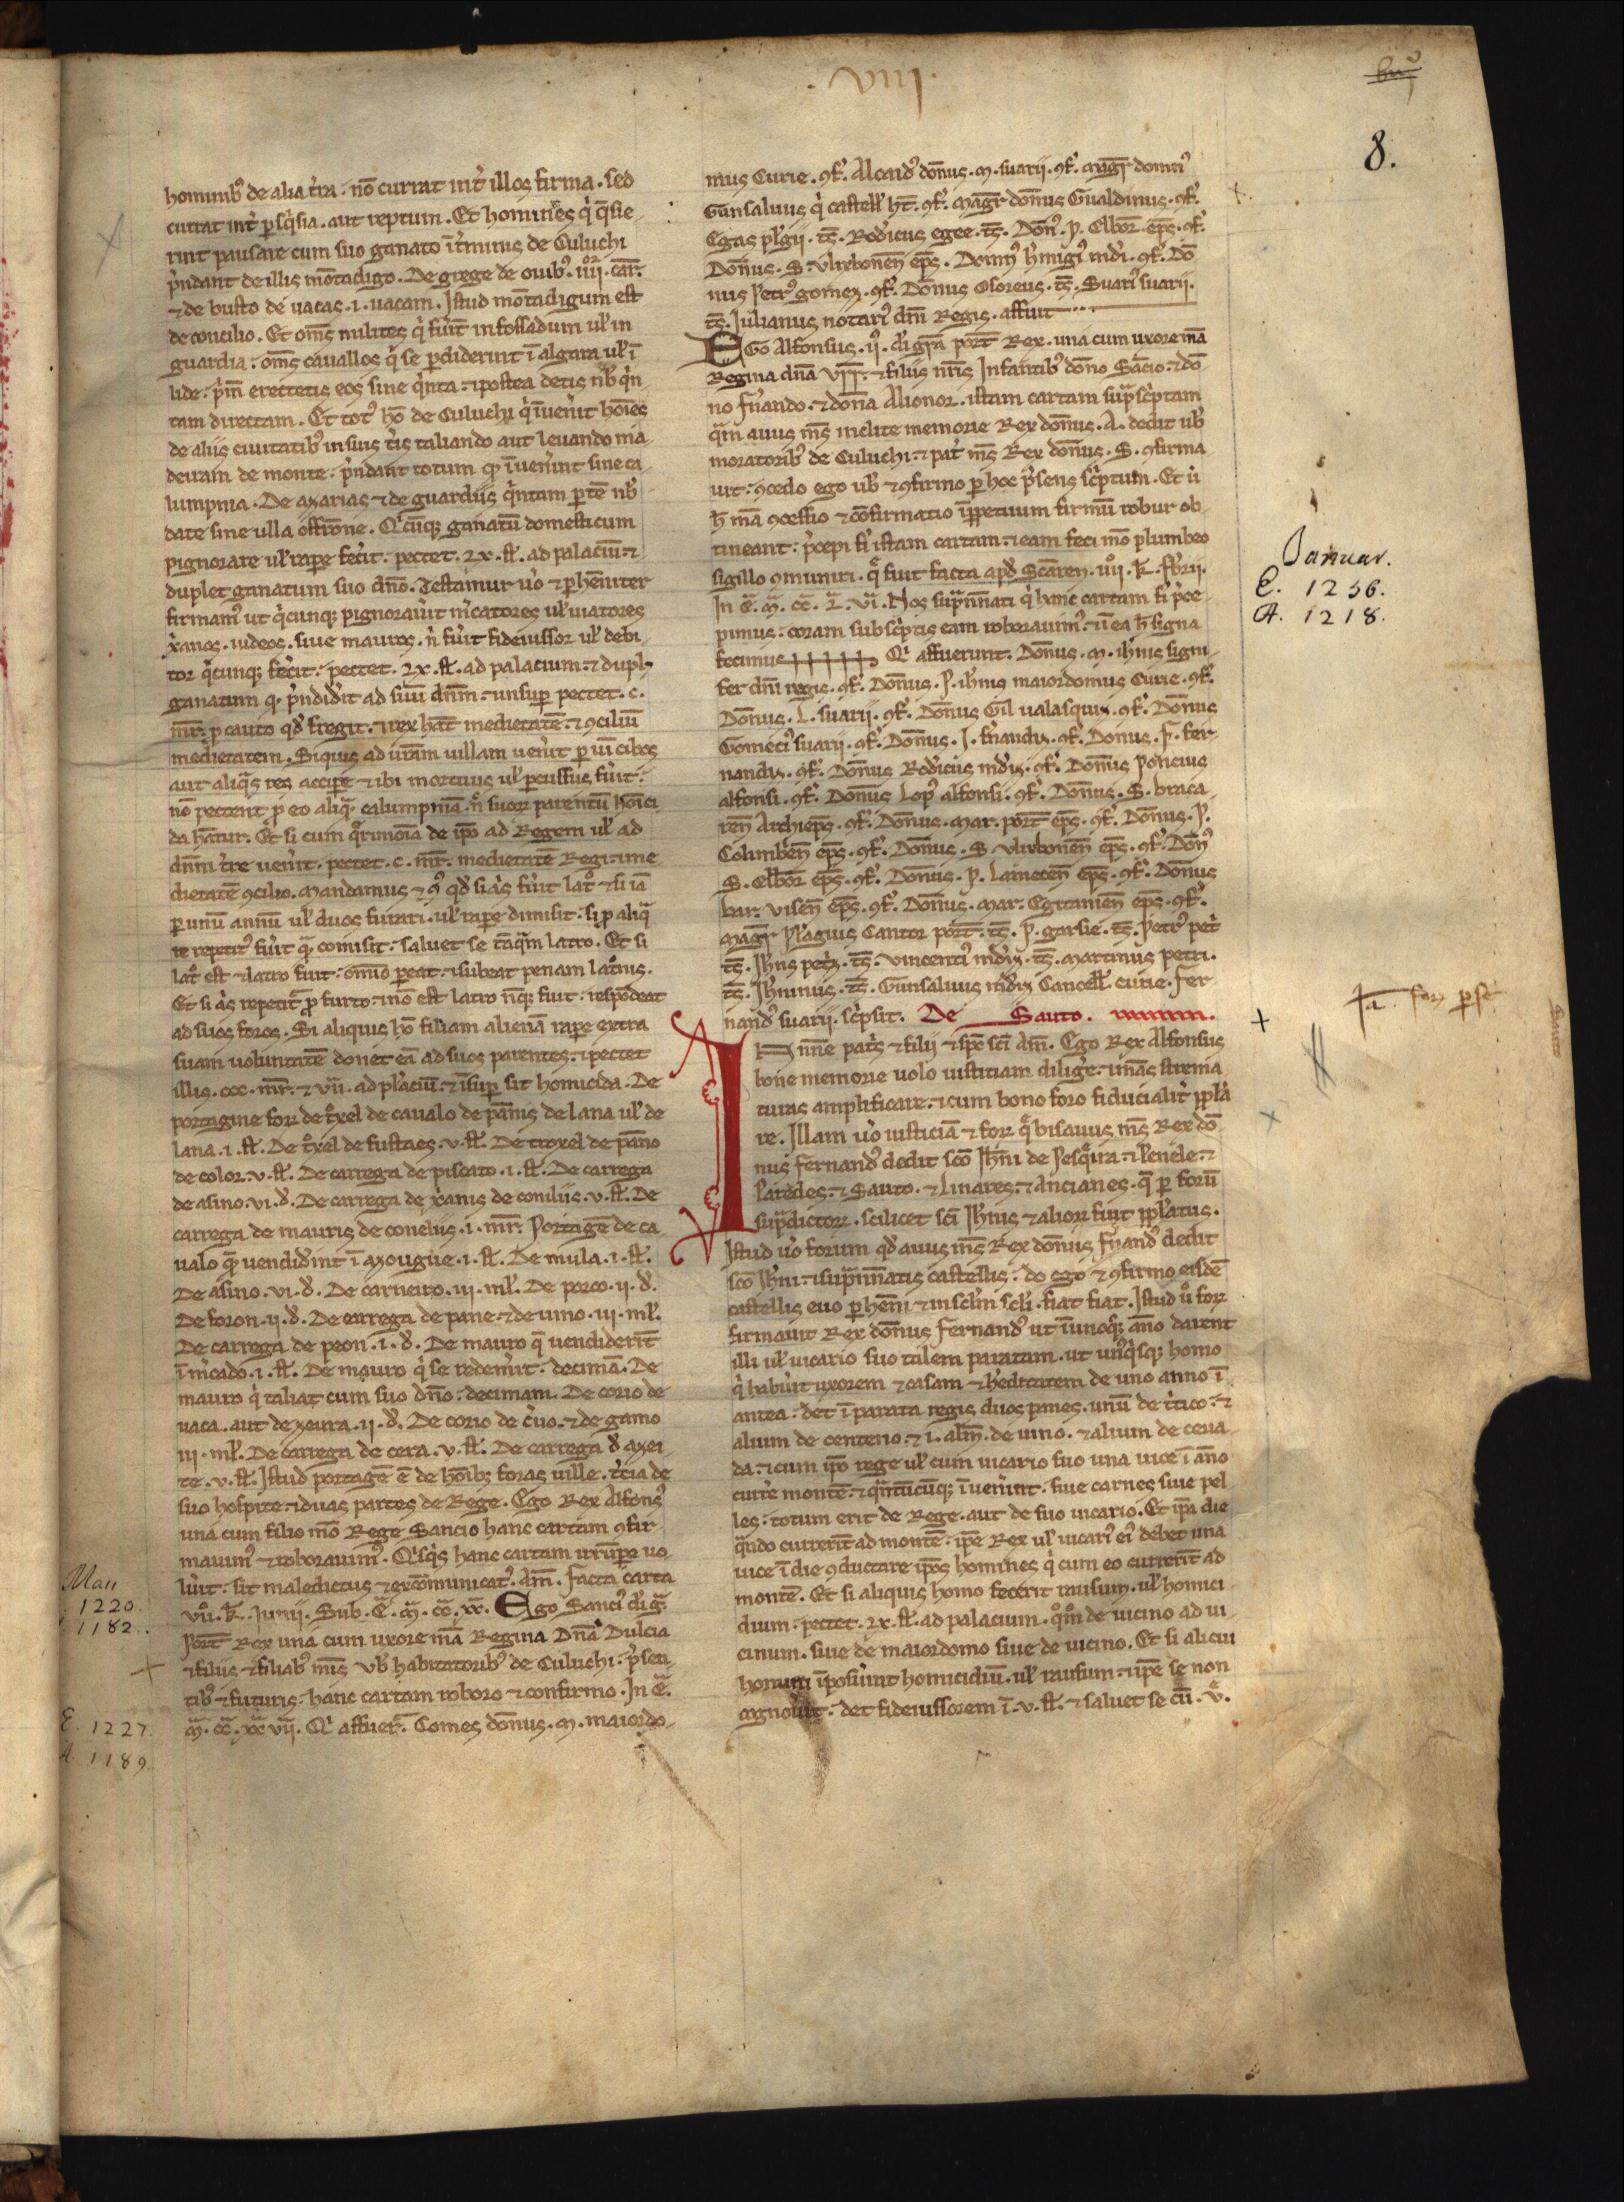 . VIII .
8.
hominibꝰ de alia t̄ra . nō currat int̉ illos firma . sed
currat int̉ ꝑ sq̇sia . aut reptum . Et homines q̇ q̄sie
rint pausare cum suo ganato ī t̉minis de Culuchi
p̉ndant de illis mōtadigo . De grege de ouibꝰ . iiij . car̄.
⁊ de busto de uacas . i . uacam . Istud mōtadigum est
de concilio . Et om̄s milites q̇ fūit in fossadum ul̉ in
guardia : om̄s cauallos q̇ se ꝑdiderint ī algara ul̉ ī
lide . p̉m erectetis eos sine q̇nta . ⁊ postea detis nb̉ q̇n
tam directam . Et totꝰ hō de Culuchi q̇ īuen̉it hoīes
de aliis ciuitatibꝰ in suis t̉is taliando aut leuando ma
deiram de monte . p̉ndant totum qͦ īuen̉int sine ca
lumpnia . De azarias ⁊ de guardiis q̇ntam ꝑtē nb̉
date sine ulla offr̄one . Q̇cūqꝫ ganatū domesticum
pignorare ul̉ raꝑe fec̉it . pectet . lx . sł . ad palaciū . ⁊
duplet ganatum suo dn̄o . Testamur ūo ⁊ ꝑhēniter
firmamꝰ ut q̇cunqꝫ pignoraủit m̉catores ul̉ uiatores
x̉anos . iudeos . siue mauros . n̉ fūit fideiussor ul̉ debi
tor q̇cunqꝫ fec̉it . pectet . lx . sł . ad palacium . ⁊ duplꝫ
ganatum qͦ p̉ndid̉it ad suū dn̄m . ⁊ insuꝑ pectet . c .
mr̄ . ꝓ cauto qd̉ fregit . ⁊ rex hāt medietatē . ⁊ ꝯciliū
medietatem . Siquis ad ur̄am uillam uen̉it ꝑ ui cibos
aut aliq̇s res accip̉e ⁊ ibi mortuus ul̉ ꝑcussus fūit .
nō pectent ꝓ eo aliqͣ calumpniā . n̉ suoꝝ parentū hoīci
da hāt̄ur . Et si cum q̉rimoīa de ip̄o ad Regem ul̉ ad
dn̄m t̉re uen̉it . pectet . c . mr̄ . medietatē Regi . ⁊ me
dietatē ꝯcilio . Mandamus ⁊ ꝯͦ qd̉ siq̇s fūit latͦ ⁊ si iā
ꝑ unū annū ul̉ duos furari . ul̉ raꝑe dimisit . si ꝓ aliqͣ
re repetitꝰ fūit qͦ comisit . saluet se tāqͣm latro . Et si
latͦ est ⁊ latro fuit . om̄io ꝑeat . ⁊ subeat penam latͦnis .
Et si q̇s repetit̉ ꝓ furto . ⁊ nō est latro n̄qꝫ fuit . respōdeat
ad suos foros . Si aliquis hō filiam alienā raꝑe extra
suam uoluntatē donet eā ad suos parentes . ⁊ pectet
illis . ccc . mr̄ . ⁊ vii . ad pl̉aciū . ⁊ īsuꝑ sit homicida . De
portagine foꝝ de tͦxel de caualo de pānis de lana ul̉ de
lana . i . sł . De tͦxel de fustaes . v . sł . De troxel de pāno
de color . v . sł . De carrega de piscato . i . sł . De carrega
de asino . vi . đ . De carrega de x̉anis de coniliis . v . sł . De
carrega de mauris de conelius . i . mr̄ . Portagē de ca
ualo q̄ uendid̉int ī azougue . i . sł . De mula . i . sł .
De asino . vi . đ . De carneiro . iii . ml̉ . De porco . ii . đ .
De foron . ii . đ . De carrega de pane . ⁊ de uino . iii . ml̉ .
De carrega de peon . i . đ . De mauro q̄ uendiderīt
ī m̉cado . i . sł . De mauro q̇ se redem̉it . decimā . De
mauro q̇ taliat cum suo dn̄o . decimam . De corio de
uaca . aut de zeura . ii . đ . De corio de c̉uo . ⁊ de gamo
iii . ml̉ . De carrega de cera . v . sł . De carrega đ azei
te . v . sł . Istud portagē ē de hoībꝫ foras uille . t̉cia de
suo hospite . ⁊ duas partes de Rege . Ego Rex Alfonsꝰ
una cum filio mō Rege Sancio hanc cartam ꝯfir
mauimꝰ ⁊ roborauimꝰ . Q̇sq̇s hanc cartam irrūꝑe uo
lūit . sit maledictus ⁊ excōmunicatꝰ . Am̄ . Facta carta
viiͦ . k̄ . Junii . Sub . Eͣ . Mͣ . ccͣ . xxͣ . Ego Sanciꝰ di gͣ
Port̄ Rex una cum uxore mā Regina Dn̄a Dulcia
⁊ filiis ⁊ filiabꝰ mīs Vb̉ habitatoribꝰ de Culuchi . p̉sen
tibꝰ ⁊ futuris . hanc cartam roboro ⁊ confirmo . In Eͣ .
Mͣ . ccͣ . xxͣ viiͣ . Q̇ affuer̄ . Comes dōnus . M . maiordo
Maii
1220.
1182.
E. 1227.
A. 1189.
mus Curie . ꝯf̉ . Alcaidꝰ dōnus . M . suarii . ꝯf̉ . Magr̄ domn̉
Gunsaluus q̇ castell̉ hт̄ . ꝯf̉ . Magr̄ dōnus Gualdinus . ꝯf̉ .
Egas pl̉gii . ts̄ . Rod̉icus egee . ts̄ . Dōnꝰ . P . Elbor̄ . ep̄s . ꝯf̉ .
Dōnus . S . Vlixbonēn ep̄s . Donnꝰ h̉migiꝰ m̄di . ꝯf̉ . Dō
nus Petrꝰ gomez . ꝯf̉ . Dōnus Osoreus . ts̄ . Suariꝰ suarii .
ts̄ . Julianus notariꝰ dn̄i Regis . affuit
EGo Alfonsus . iiͦ . di gr̄a port̄ Rex . una cum uxore mā
Regina dn̄a Vrr̄ . ⁊ filiis nr̄is Infantibꝰ dōno Sācio . ⁊ dō
no fn̉ando . ⁊ dōna Alionor . istam cartam suprͣsc̉ptam
qͣm auus ms̄ inclite memorie Rex dōnus . A . dedit ub̉
moratoribꝰ de Culuchi . ⁊ pat̉ ms̄ Rex dōnus . S . ꝯfirma
uit . ꝯcedo ego ub̉ ⁊ ꝯfirmo ꝑ hoc p̉sens sc̉ptum . Et ū
h̄ mā ꝯcessio ⁊ cōfirmatio īꝑpetuum firmū robur ob
tineant . p̉cepi f̉i istam cartam . ⁊ eam feci mō plumbeo
sigillo ꝯmuniri . q̄ fuit facta apd̉ Scāren . viiͦ . k̄ . Fb̉rii .
In Eͣ . Mͣ . ccͣ . Lͣ . viͣ . Nos suprͣnnati q̇ hanc cartam f̉i p̉ce
pimus . coram subsc̉ptis eam roborauimꝰ . ⁊ ī ea h̄ signa
fecimus +++++ Q̇ affuerunt . Dōnus . M . ih̄nis signi
fer dn̄i regis . ꝯf̉ . Dōnus . P . ih̄nis maiordomus Curie . ꝯf̉ .
Dōnus . L . suarii . ꝯf̉ . Dōnus Gil ualasquiz . ꝯf̉ . Dōnus
Gomeciꝰ suarii . ꝯf̉ . Dōnus . J . fn̉andiz . ꝯf̉ . Dōnus . F . fer
nandiz . ꝯf̉ . Dōnus Rod̉icus m̄diz . ꝯf̉ . Dōnus Poncius
alfonsi . ꝯf̉ . Dōnus Lopꝰ alfonsi . ꝯf̉ . Dōnus . S . braca
rēn Archiep̄s . ꝯf̉ . Dōnus . Mar . port̄ ep̄s . ꝯf̉ . Dōnus . P .
Colimbēn ep̄s . ꝯf̉ . Dōnus . S . Vlixbonēn ep̄s . ꝯf̉ . Dōnꝰ
S . Elbor̄ ep̄s . ꝯf̉ . Dōnus . P . Lamecēn ep̄s . ꝯf̉ . Dōnus
bar . Visēn ep̄s . ꝯf̉ . Dōnus . Mar . Egitaniēn ep̄s . ꝯf̉ .
Magr̄ Pl̉agius Cantor port̄ . ts̄ . P . garsie . ts̄ . Petrꝰ pet̉
ts̄ . Ih̄ns petꝫ . ts̄ . Vincentiꝰ m̄diz . ts̄ . Martinus petri .
ts̄ . Ih̄ninus . ts̄ . Gunsaluus m̄diz Cancell̉ . curie . Fer
nandꝰ suarii . sc̉psit . De Sauto .
IN nn̄e pat̉s ⁊ filij ⁊ sp̄c sc̄i Am̄ . Ego Rex Alfonsus
bone memorie uolo iustitiam dilig̉e . ⁊ mās strema
turas amplificare . ⁊ cum bono foro fiducialit̉ ꝓpla
re . Illam ūo iusticiā ⁊ foꝝ q̄ bisauus ms̄ Rex dō
nus fernandꝰ dedit sc̄o Ih̄ni de Pesq̄ira . ⁊ Penele . ⁊
Paredes . ⁊ Sauto . ⁊ Linares . ⁊ Ancianes . q̄ ꝑ forū
suprͣdictoꝝ . scilicet sc̄i Ih̄nis ⁊ alioꝝ fuit ꝓpl̉atus .
Istud ūo forum qd̉ auus ms̄ Rex dōnus fn̉andꝰ dedit
sc̄o Ih̄ni . ⁊ suprͣnnatis castellis . do ego ⁊ ꝯfirmo eisdē
castellis euo ꝑhēni ⁊ in sclm̄ scl̉i . fiat fiat . Istud ūͦ foꝝ
firmauit Rex dōnus Fernandꝰ ut īunoqͦqꝫ āno darent
illi ul̉ uicario suo talem paratam . ut unꝰq̇sqꝫ homo
q̇ habūit uxorem ⁊ casam ⁊ h̉editatem de uno anno ī
antea . det ī parata regis duos panes . unū de t̉tico . ⁊
alium de centeno . ⁊ i . alm̄ . de uino . ⁊ alium de ceua
da . ⁊ cum ip̄o rege ul̉ cum uicario suo una uice ī āno
curre montē . ⁊ qͣntūcūqꝫ īuen̉int . siue carnes siue pel
les . totum erit de Rege . aut de suo uicario . Et ip̄a die
qͣndo currerīt ad montē . ip̄e Rex ul̉ uicariꝰ eiꝰ debet una
uice ī die ꝯductare ip̄os homines q̇ cum eo currerīt ad
montē . Et si aliquis homo fecerit rausum . ul̉ homici
dium . pectet . lx . sł . ad palacium . qͦmͦ de uicino ad ui
cinum . siue de maiordomo siue de uicino . Et si alicui
homini īposūint homicidiū . ul̉ rausum . ⁊ ip̄e se non
cognouit . det fideiussorem ī . v . sł . ⁊ saluet se cū . vͤ .
Januar.
E. 1256.
A. 1218.
Sauto